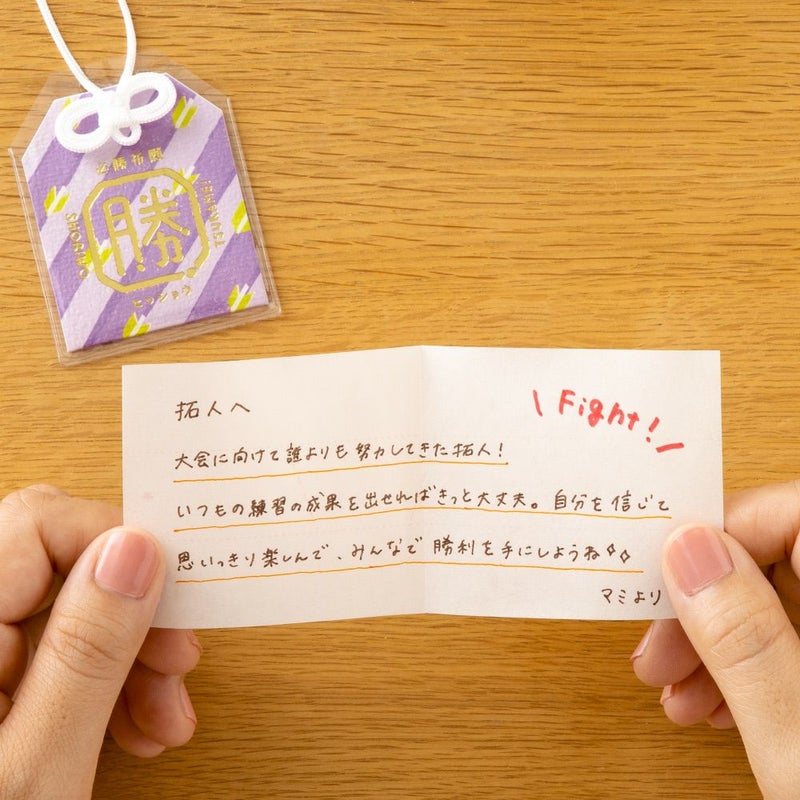 必勝布願
勝
SHORI NO
ヒッショウ
拓人へ
\ Fight! /
大会に向けて誰よりも努力してきた拓人!
いつもの練習の成果を出せればきっと大丈夫。自分を信じて
思いっきり楽しんで、みんなで勝利を手にしようね
マミより